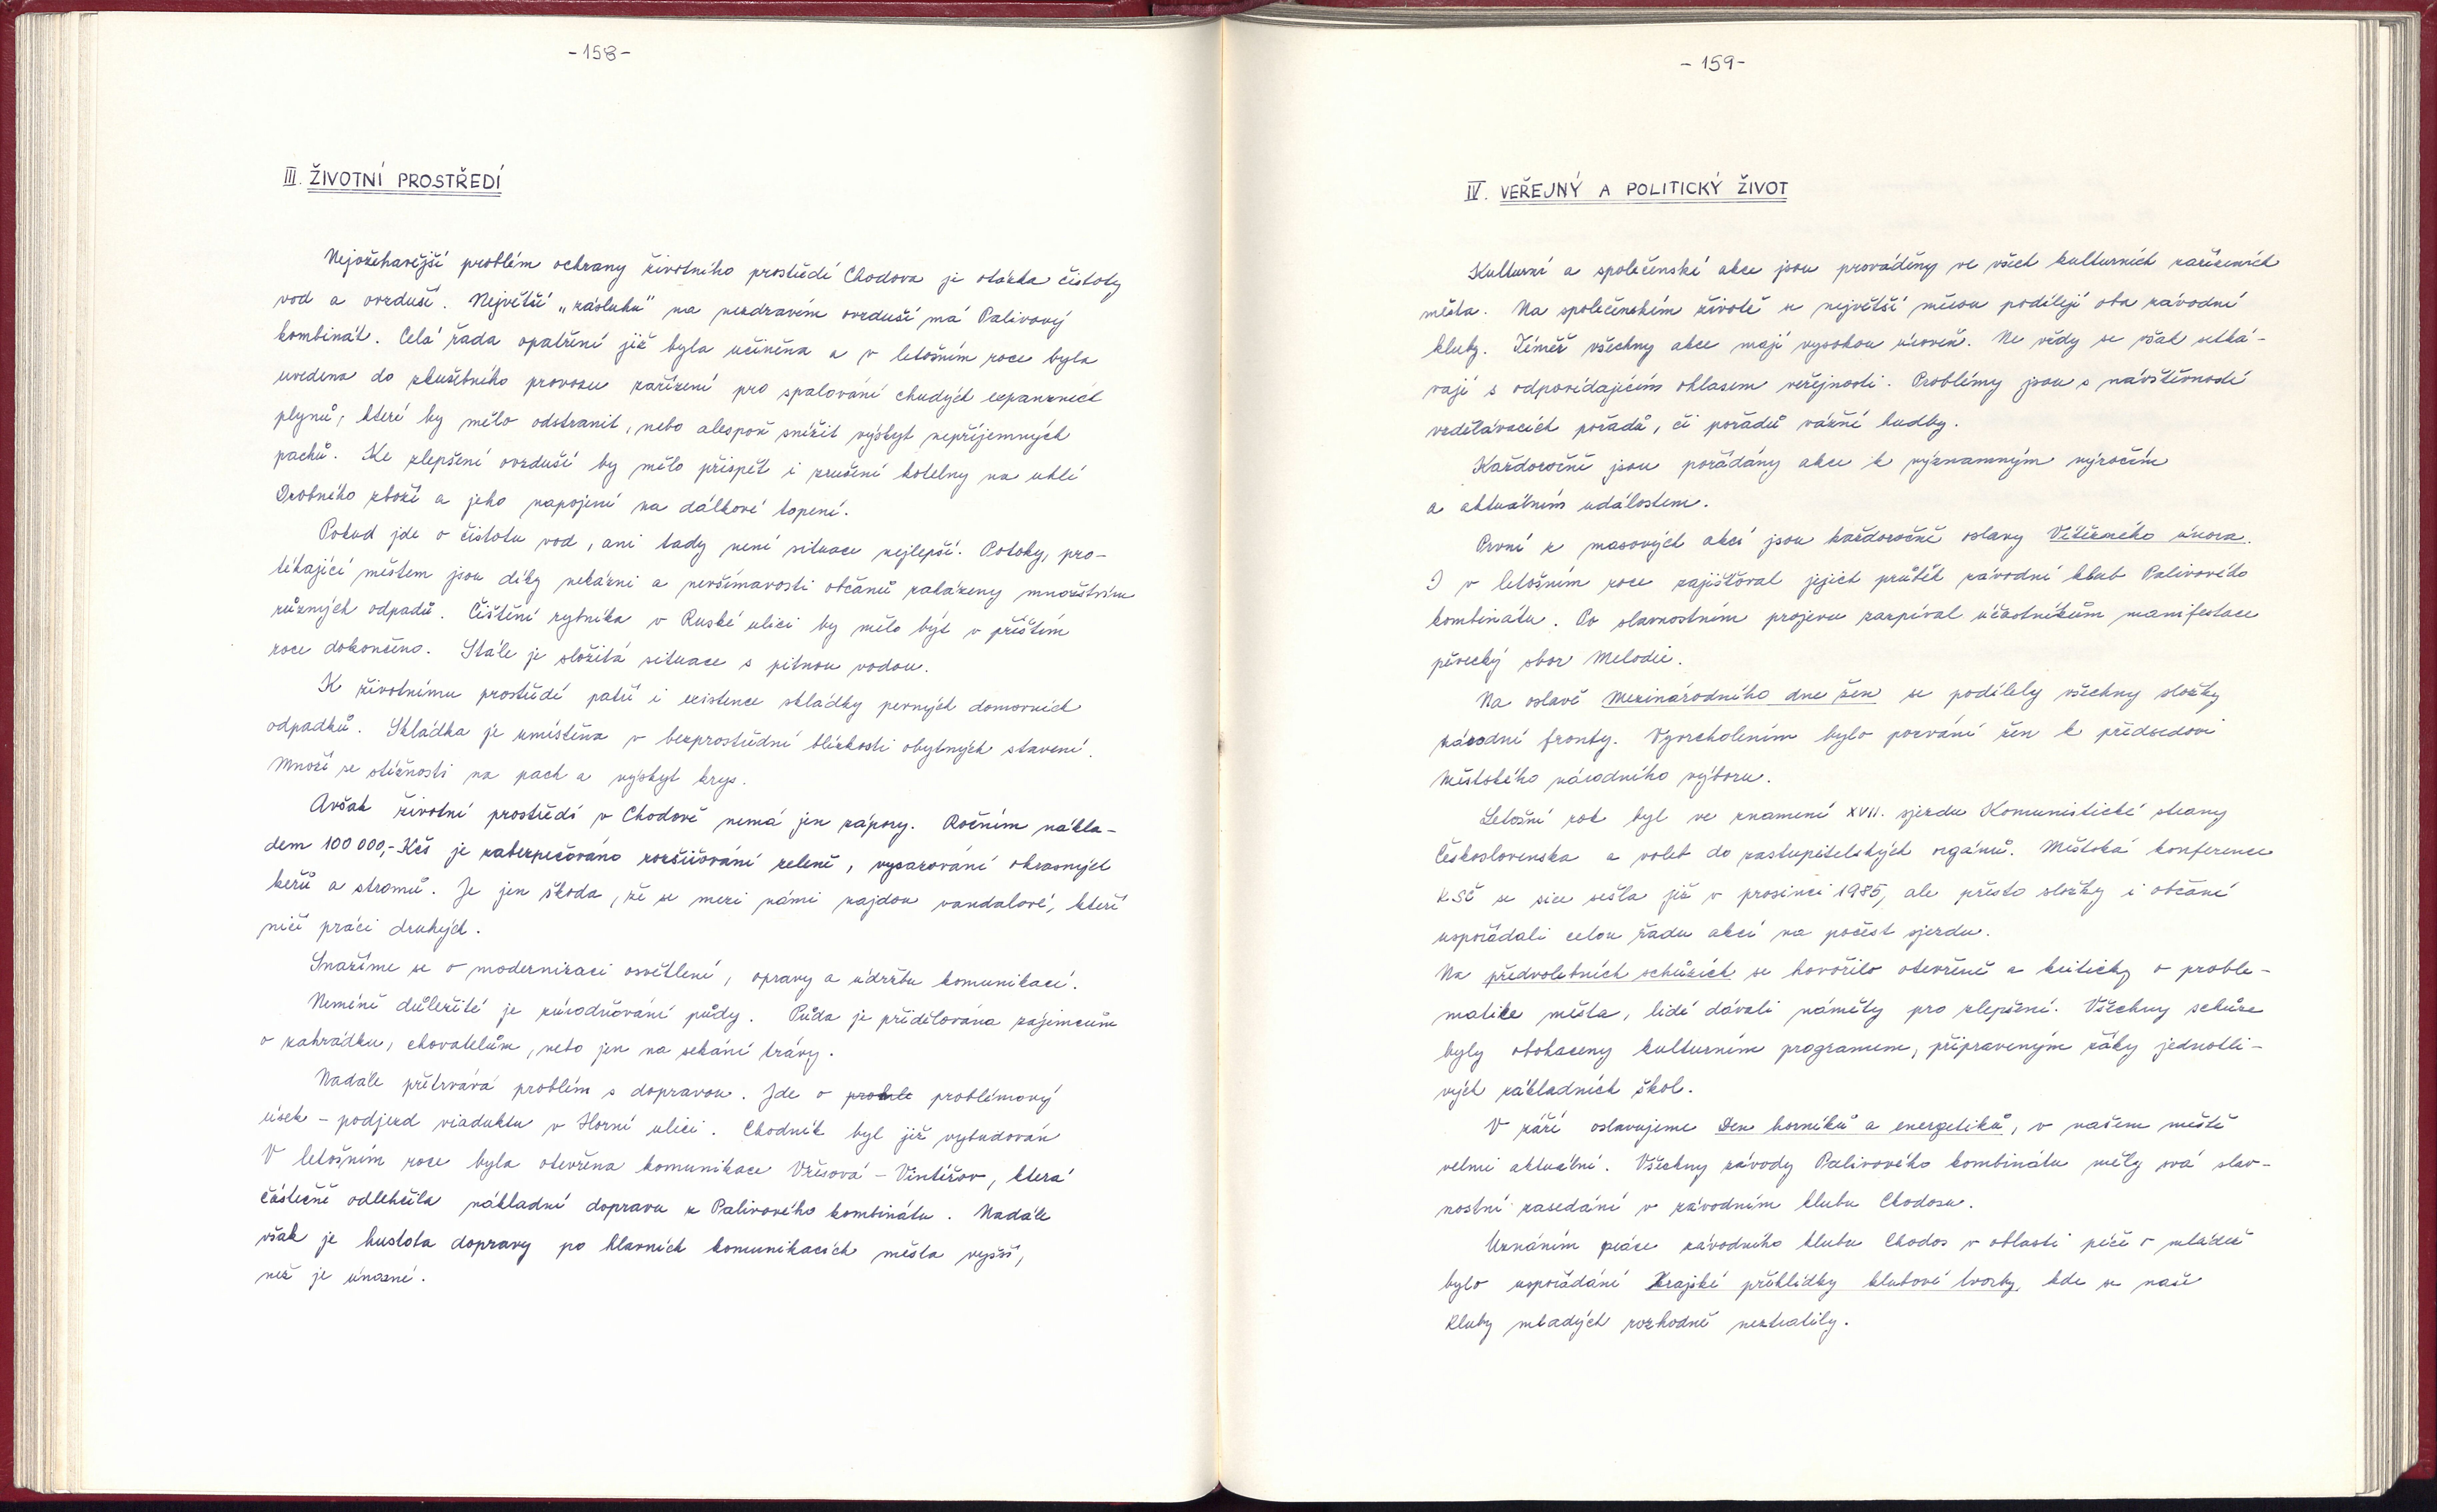 -158-
III. ŽIVOTNÍ PROSTŘEDÍ
Nejožehavější problém ochrany životního prostředí Chodova je otázka čistoty
vod a ovzduší. Největší „zásluhu" na nezdravém ovzduší má Palivový
kombinát. Celá řada opatření již byla učiněna a v letošním roce byla
uvedena do zkušebního provozu zařízení pro spalování chudých expanzních
plynů, které by mělo odstranit, nebo alespoň snížit výskyt nepříjemných
pachů. Ke zlepšení ovzduší by mělo přispět i zrušení kotelny na uhlí
Drobného zboží a jeho napojení na dálkové topení.
Pokud jde o čistotu vod, ani tady není situace nejlepší. Potoky, pro-
tékající městem jsou díky nekázni a nevšímavosti občanů zaházeny množstvím
různých odpadů. Čištění rybníka v Ruské ulici by mělo být v příštím
roce dokončeno. Stále je složitá situace s pitnou vodou.
K životnímu prostředí patří i existence skládky pevných domovních
odpadků. Skládka je umístěna v bezprostřední blízkosti obytných stavení.
Množí se stížnosti na pach a výskyt krys.
Avšak životní prostředí v Chodově nemá jen zápory. Ročním nákla-
dem 100 000,- Kčs je zabezpečováno rozšiřování zeleně, vysazování okrasných
keřů a stromů. Je jen škoda, že se mezi námi najdou vandalové, kteří
ničí práci druhých.
Snažíme se o modernizaci osvětlení, opravy a údržbu komunikací.
Neméně důležité je zúrodňování půdy. Půda je přidělována zájemcům
o zahrádku, chovatelům, nebo jen na sekání trávy.
Nadále přetrvává problém s dopravou. Jde o problémový
úsek - podjezd viaduktu v Horní ulici. Chodník byl již vybudován
V letošním roce byla otevřena komunikace Vřesová - Vintířov, která
částečně odlehčila nákladní dopravu z Palivového kombinátu. Nadále
však je hustota dopravy po hlavních komunikacích města vyšší,
než je únosné.
-159-
IV. VEŘEJNÝ A POLITICKÝ ŽIVOT
Kulturní a společenské akce jsou prováděny ve všech kulturních zařízeních
města. Na společenském životě se největší měrou podílejí oba závodní
kluby. Téměř všechny akce mají vysokou úroveň. Ne vždy se však setká-
vají s odpovídajícím ohlasem veřejnosti. Problémy jsou s návštěvností
vzdělávacích pořadů, či pořadů vážné hudby.
Každoročně jsou pořádány akce k významným výročím
a aktuálním událostem.
První z masových akcí jsou každoročně oslavy Vítězného února.
I v letošním roce zajišťoval jejich průběh závodní klub Palivového
kombinátu. Po slavnostním projevu zazpíval účastníkům manifestace
pěvecký sbor Melodie.
Na oslavě Mezinárodního dne žen se podílely všechny složky
národní fronty. Vyvrcholením bylo pozvání žen k předsedovi
Městského národního výboru.
Letošní rok byl ve znamení XVII. sjezdu Komunistické strany
Československa a voleb do zastupitelských orgánů. Městská konference
KSČ se sice sešla již v prosinci 1985, ale přesto složky i občané
uspořádali celou řadu akcí na počest sjezdu.
Na předvolebních schůzích se hovořilo otevřeně a kriticky o proble-
matice města, lidé dávali náměty pro zlepšení. Všechny schůze
byly obohaceny kulturním programem, připraveným žáky jednotli-
vých základních škol.
V září oslavujeme Den horníků a energetiků, v našem městě
velmi aktuální. Všechny závody Palivového kombinátu měly svá slav-
nostní zasedání v závodním klubu Chodosu.
Uznáním práce závodního klubu Chodos v oblasti péče o mládež
bylo uspořádání Krajské přehlídky klubové tvorby, kde se naše
kluby mladých rozhodně neztratily.